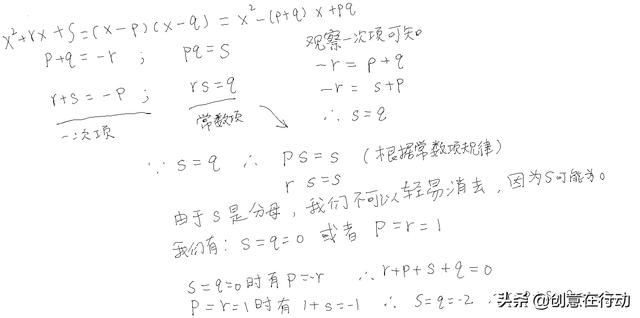 x²+rx+s=(x-p)(x-q)=x²-(p+q)x+pq
p+q=-r ; pq=s
r+s=-p ; rs=q
一次项 常数项
观察一次项可知。
-r = p+q
-r = s+p
∴ s=q
∵ s=q ∴ ps=s (根据常数项规律)
r s=s
由于s是分母，我们不可以轻易消去，因为s可能为0
我们有：s=q=0 或者 p=r=1
s=q=0时有p=-r ∴ r+p+s+q=0
p=r=1时有1+s=-1 ∴ s=q=-2
头条 @创意在行动